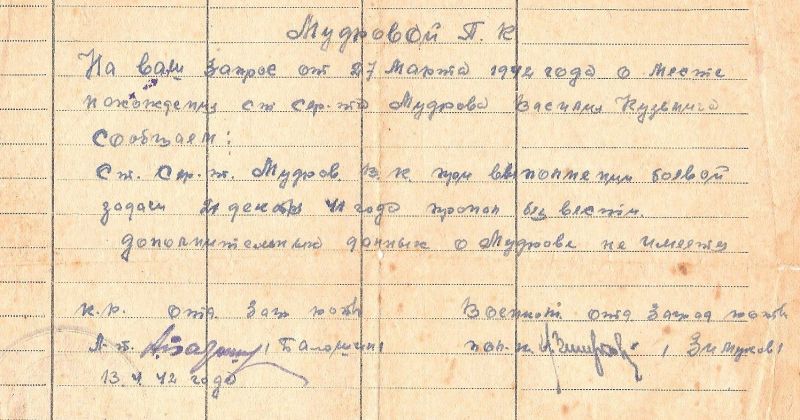 Мудровой П. К
На ваш запрос от 27 Марта 1942 года о месте
нахождения ст сер-та Мудрова Василия Кузьмича
сообщаем:
Ст. Сер. т. Мудров В. К. при выполнении боевой
задачи 21 декабр 41 года пропал без вести.
дополнительных данных о Мудрове не имеется
К.Р. отд Заг роты Военком отд Заград роты
Л-т. / Балашин / / Зимуков /
13. 4 42 года